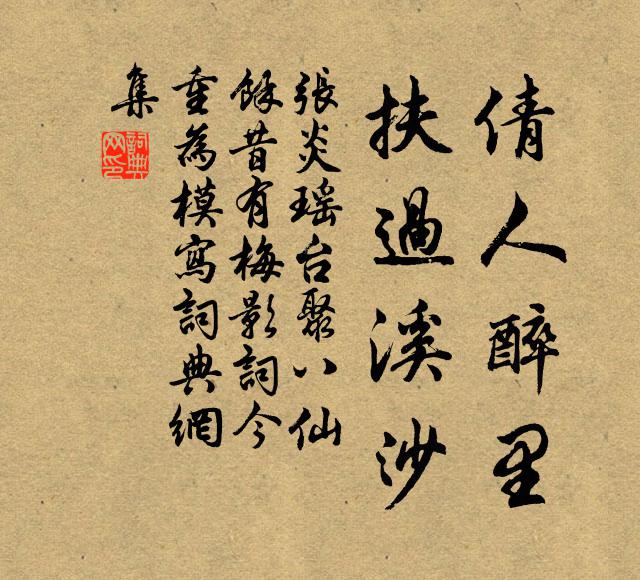 倩人醉里
扶過溪沙
張炎瑶台聚八仙
餘昔有梅影詞今
重為模寫詞典網
集
詞典
网印